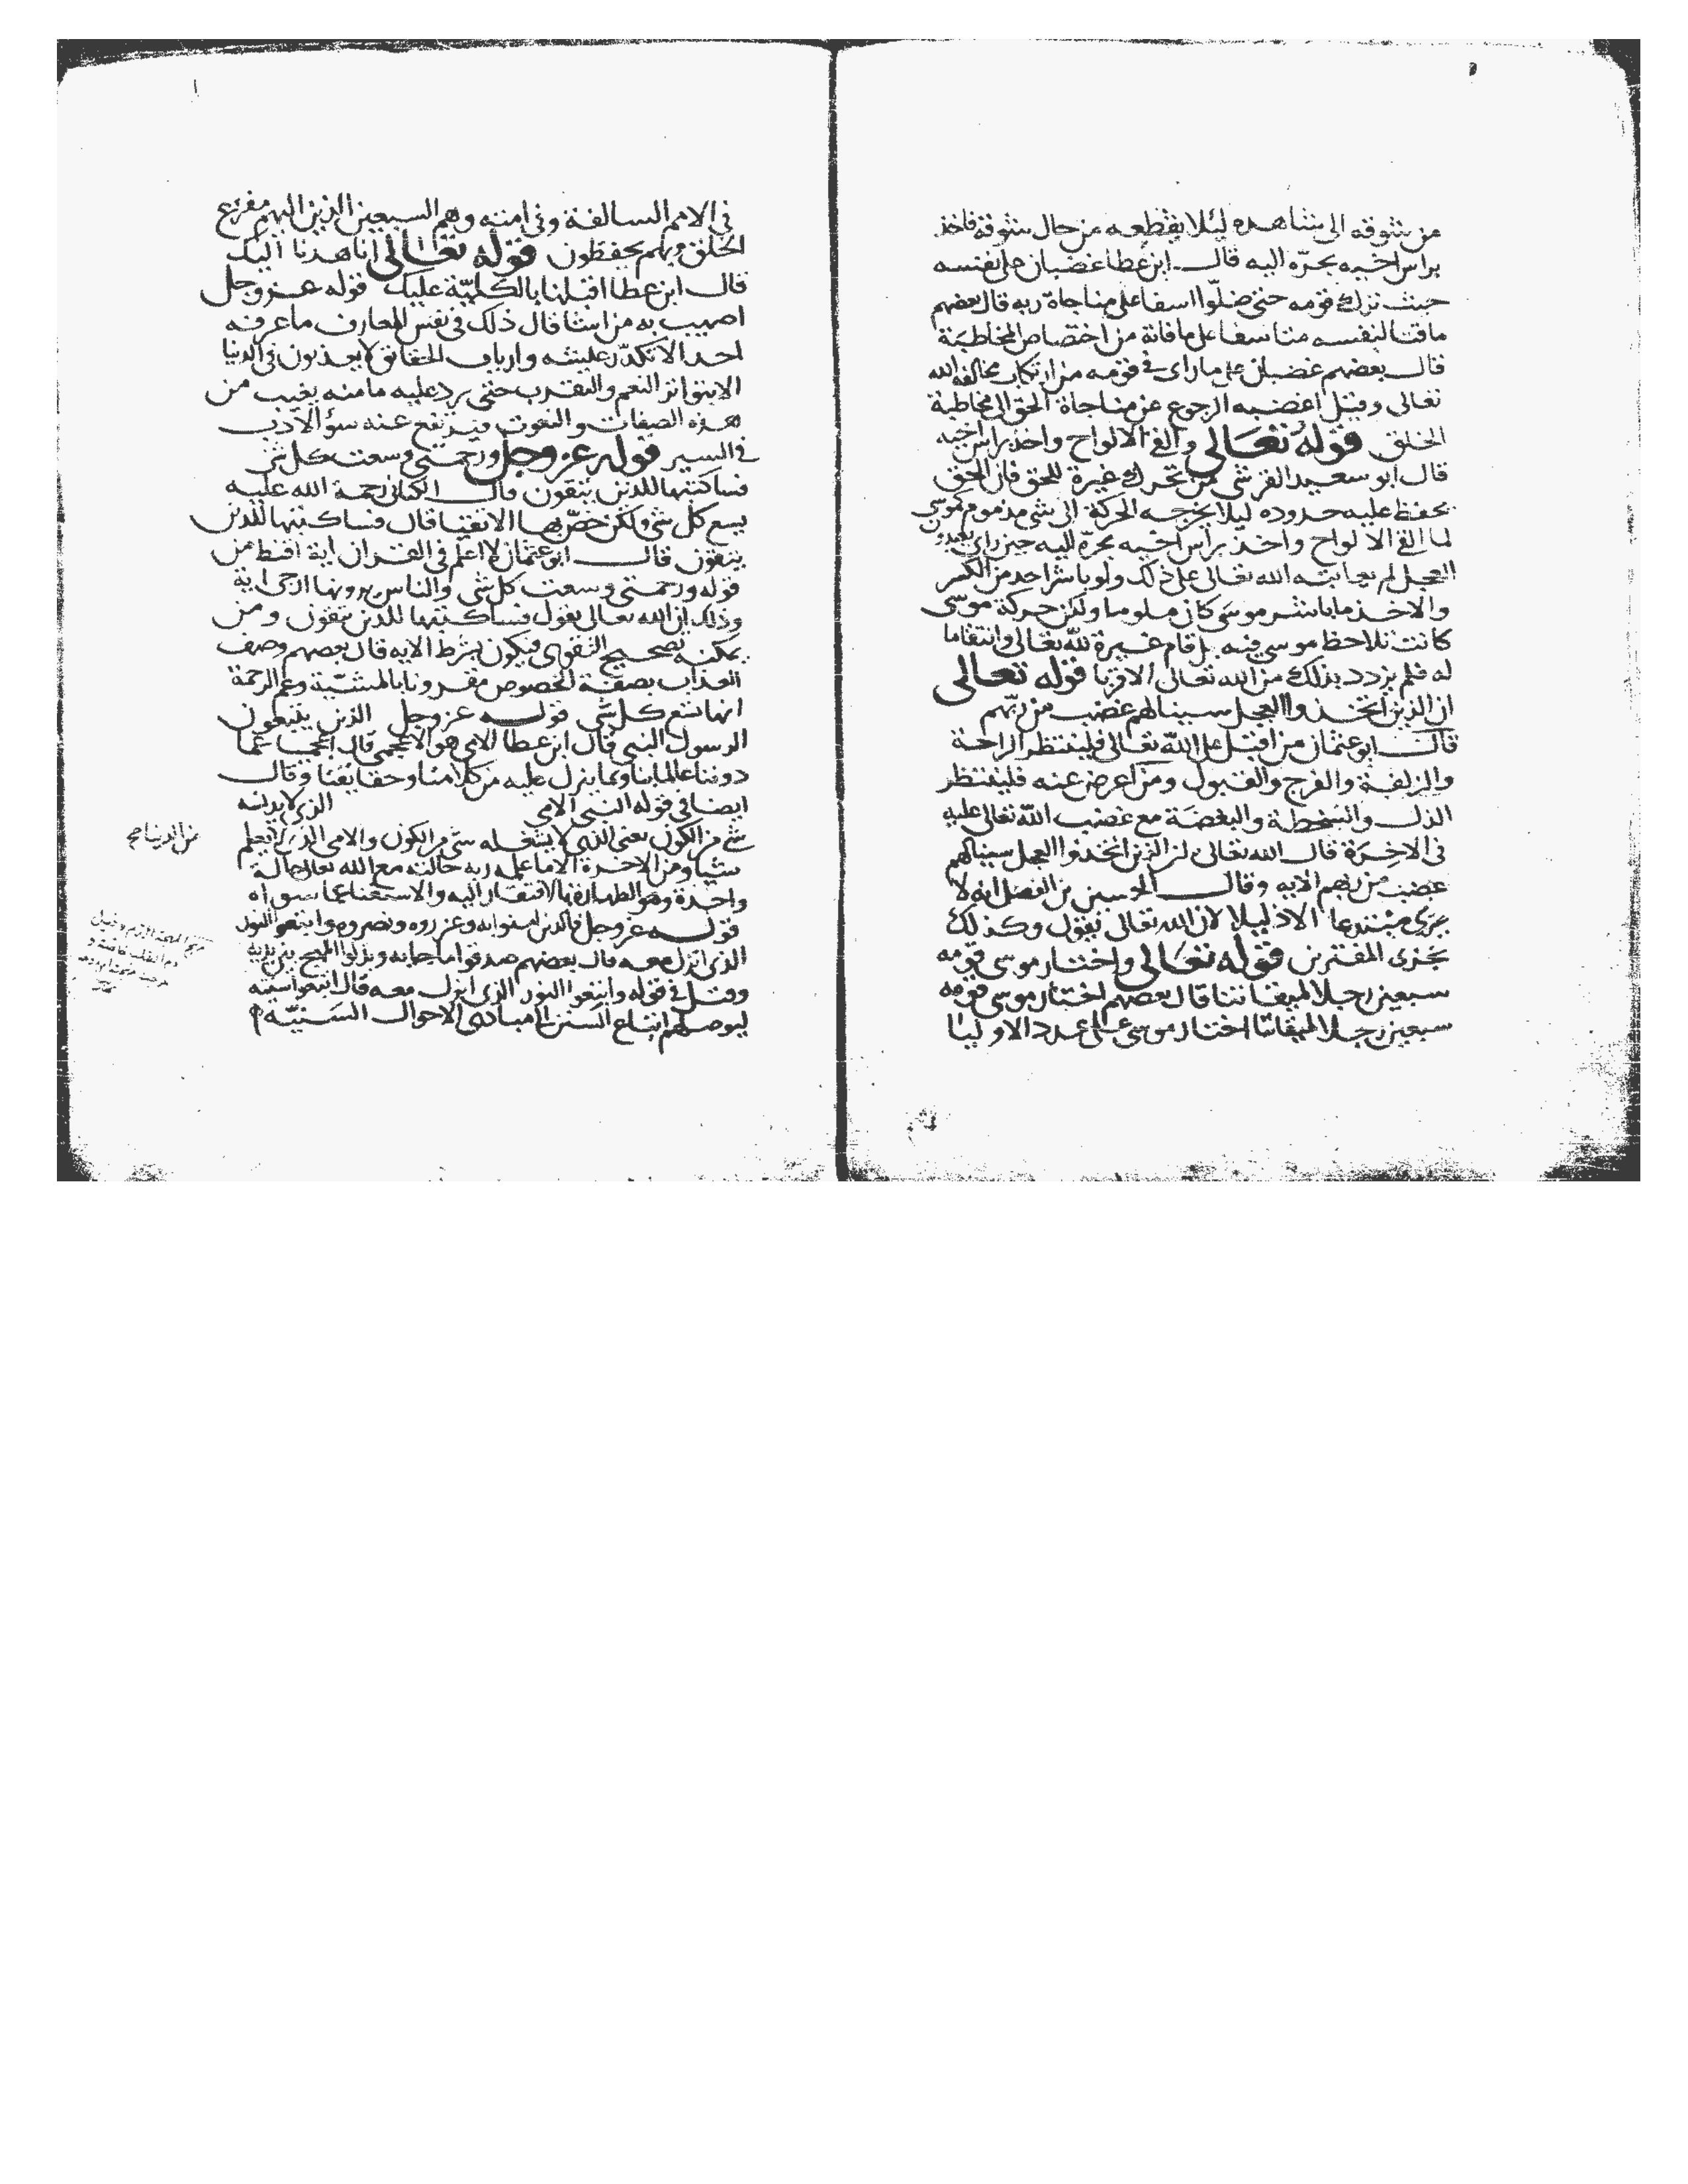 من شوقه الى مشاهده ليلا يقطعه من حال شوقه فاخذ
براس اخيه يجرّه اليه قال ابن عطا غضبان على نفسه
حيث ترك قومه حتى ضلّوا اسفا على مناجاة ربه قال بعضهم
ماقتا لنفسه متاسفا على ما فاته من اختصاص المخاطبة
قال بعضهم غضبان على ما راى في قومه من ارتكاب مخالفه الله
تعالى وقيل اغضبه الرجوع عن مناجاة الحق الى مخاطبة
الخلق قوله تعالى والقى الالواح واخذ براس اخيه
قال ابو سعيد القرشى من تحرك غيرة للحق فان الحق
يحفظ عليه حدوده ليلا يخرجه الحركة الى شى مذموم كموسى
لما القى الالواح واخذ براس اخيه يجرّه اليه حين راى يعبدون
العجل لم يعاتبه الله تعالى على ذلك ولو باشر احد من الكسر
والاخذ ما باشر موسى كان ملوما ولكن حركة موسى
كانت بلا حظ موسى فيه بل قام غيرة لله تعالى وانتقاما
له فلم يزدد بذلك من الله تعالى الا قربا قوله تعالى
ان الذين اتخذوا العجل سينالهم غضب من ربّهم
قال ابو عثمان من اقبل على الله تعالى فلينتظر الراحة
والزلفة والفرج والقبول ومن اعرض عنه فلينتظر
الذل والسّخطة والبغضة مع غضب الله تعالى عليه
فى الاخرة قال الله تعالى ان الذين اتخذوا العجل سينالهم
غضب من ربهم الايه وقال الحسين بن الفضل انه لا
يرى مبتدعا الا ذليلا لان الله تعالى يقول وكذلك
نجزى المفترين قوله تعالى واختار موسى قومه
سبعين رجلا لميقاتنا قال بعضهم اختار موسى قومه
سبعين رجلا لميقاتنا اختار موسى على عدد الاوليا
فى الامم السالفة وفى امته وهم السبعين الذين اليهم مفزع
الخلق وبهم يحفظون قوله تعالى انا هدنا اليك
قال ابن عطا اقبلنا بالكليّة عليك قوله عزوجل
اصيب به من اشا قال ذلك فى نفس المعارف ما عرفه
احد الا تكدّر عليشه وارباب الحقائق لا يعذبون فى الدنيا
الا بتواتر النعم والتقرب حتى يرد عليه ما منه يغيب من
هذه الصفات والنعوت فيرتفع عنه سؤ الادب
فى السير قوله عز وجل ورحمتى وسعت كل شى
فساكتبها للذين يتقون قال الكتانى رحمة الله عليه
يسع كل شى ولكن خصّ بها الاتقيا قال فساكتبها للذين
يتقون قال ابو عثمان لا اعلم فى القران اية اقنط من
قوله ورحمتى وسعت كل شى والناس يرونها ارجى اية
وذلك ان الله تعالى يقول فساكتبها للذين يتقون ومن
يمكنه تصحيح التقوى فيكون بشرط الايه قال بعضهم وصف
العذاب بصفة الخصوص مقرونا بالمشيّة وعم الرحمة
انها تسع كل شى قوله عز وجل الذين يتبعون
الرسول النبى قال ابن عطا الامى هو الاعجمى قال اعجميا عما
دوننا عالما بنا وبما ينزل عليه من كلامنا وحقايقنا وقال
ايضا فى قوله النبى الامى الذى لا يدانه
شى من الكون يعنى الذى لا يشغله شى من الكون والامى الذى لا يعلم
شيا ومن الاخرة الا ما علمه ربه حالته مع الله تعالى حالة
واحدة وهو الطهارة بالافتقار اليه والاستغنا عما سواه
قوله عز وجل فالذين امنوا به وعزروه ونصروه واتبعوا النور
الذى انزل معه قال بعضهم صدقوا ما جا به وبذلوا المهج بين يديه
وقيل فى قوله واتبعوا النور الذى انزل معه قال اتبعوا سنته
ليوصلهم اتباع السنن الى مبادى الاحوال السَنيّه
من الدنيا صح